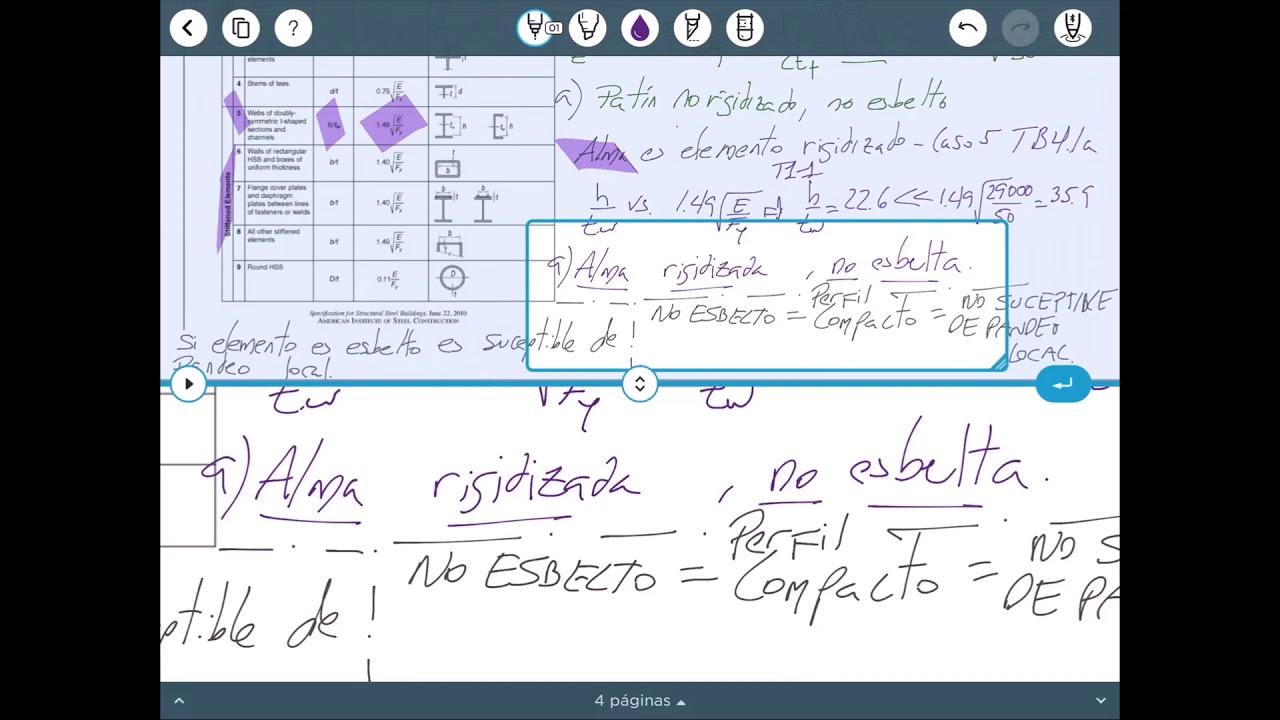 01
elements
4 Stems of tees d/t 0.75 √E/Fy
5 Webs of doubly-symmetric I-shaped sections and channels h/tw 1.49 √E/Fy
6 Walls of rectangular HSS and boxes of uniform thickness b/t 1.40 √E/Fy
7 Flange cover plates and diaphragm plates between lines of fasteners or welds b/t 1.40 √E/Fy
8 All other stiffened elements b/t 1.49 √E/Fy
9 Round HSS D/t 0.11 E/Fy
Stiffened Elements
Specification for Structural Steel Buildings, June 22, 2010
AMERICAN INSTITUTE OF STEEL CONSTRUCTION
Si elemento es esbelto es suceptible de !
Pandeo local.
2tf
a) Patín no rigidizado, no esbelto
Alma es elemento rigidizado - Caso 5 TB4.1a
T1-1
h/tw vs. 1.49 √E/Fy ⇒ h/tw = 22.6 << 1.49 √29000/50 = 35.9
a) Alma rigidizada, no esbelta.
NO ESBELTO = Perfil Compacto = NO SUCEPTIBLE
DE PANDEO
LOCAL.
tw √Fy tw
a) Alma rigidizada, no esbelta.
NO ESBELTO = Perfil Compacto = NO S
DE PA
ptible de !
4 páginas